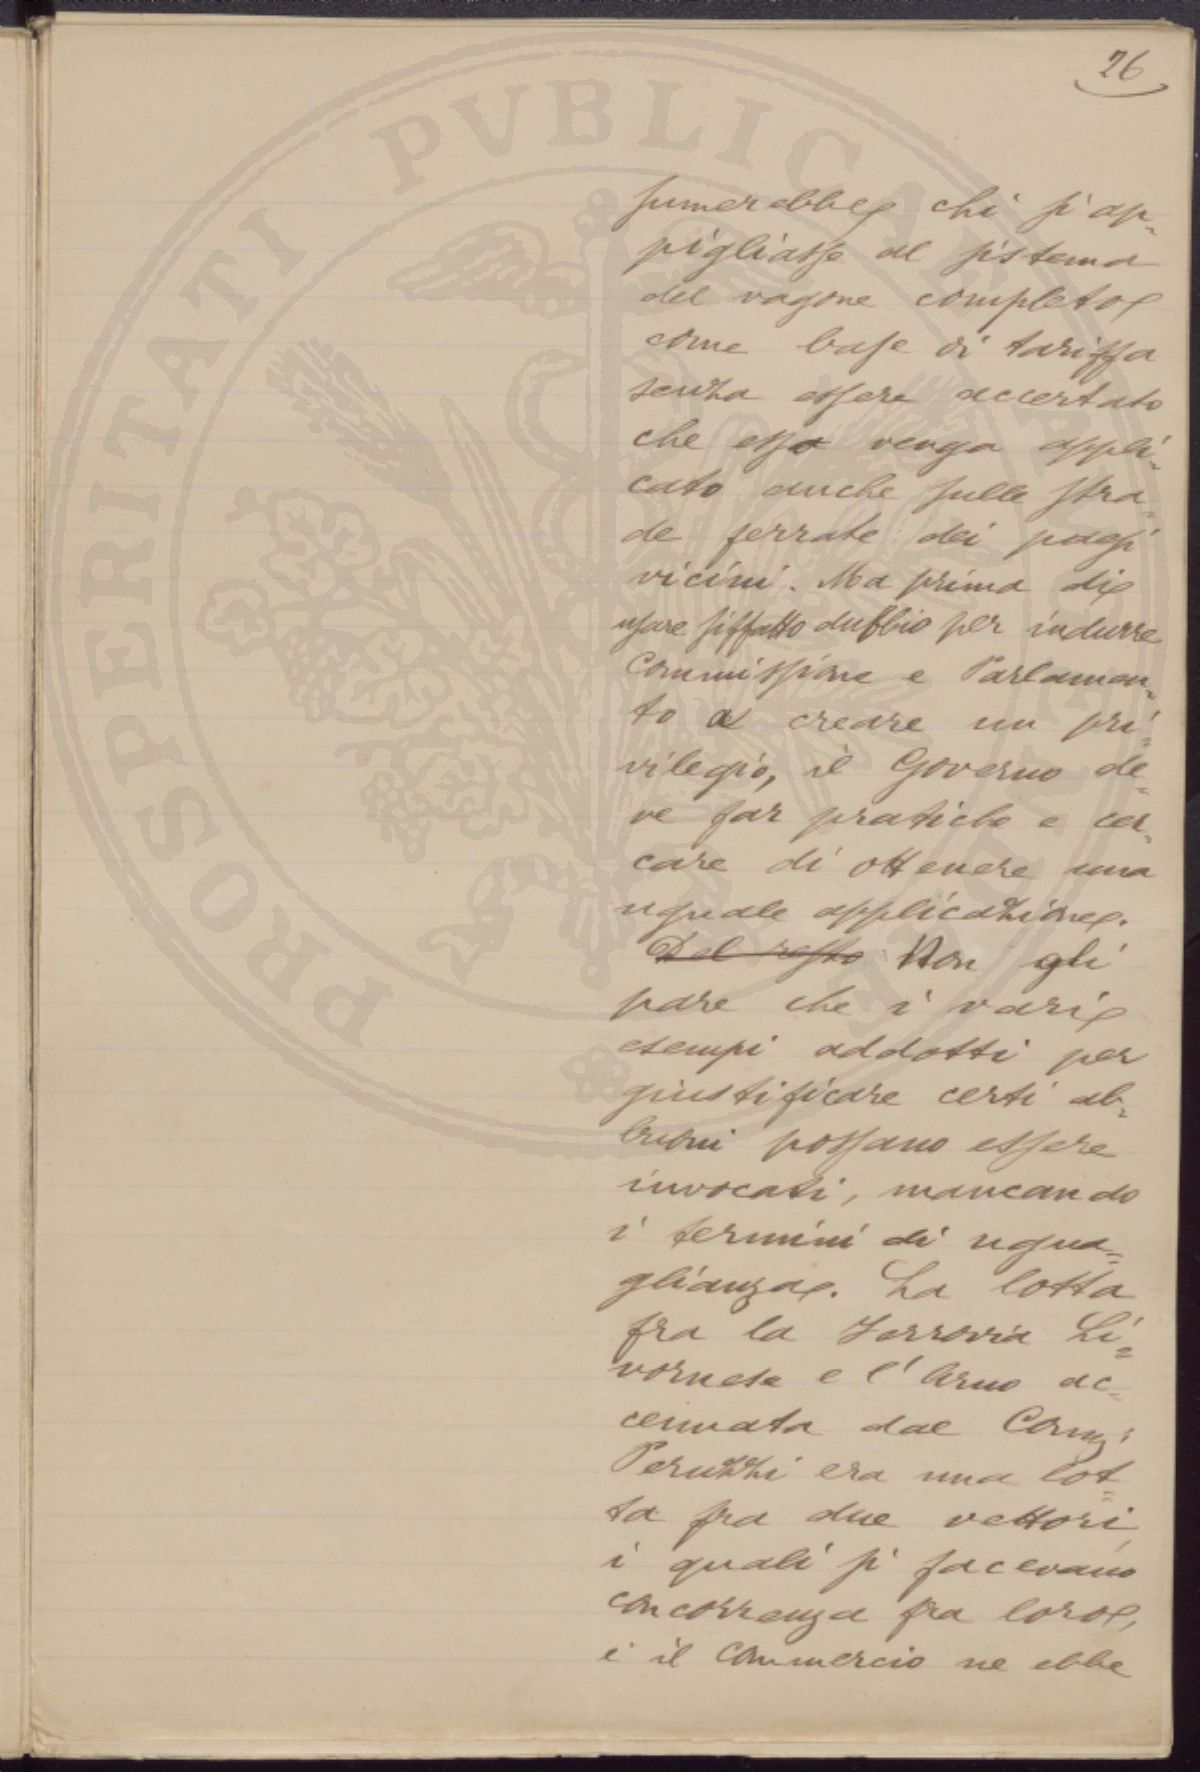 26
PROSPERITATI PVBLICAE
sumerebbe chi si ap=
pigliasse al sistema
del vagone completo
come base di tariffa
senza essere accertato
che esso venga appli=
cato anche sulle stra=
de ferrate dei paesi
vicini. Ma prima di
usare siffatto dubbio per indurre
Commissione e Parlamen=
to a creare un pri=
vilegio, il Governo de=
ve far pratiche e cer=
care di ottenere una
uguale applicazione.
Del resto Non gli
pare che i vari
esempi addotti per
giustificare certi ab=
buoni possano essere
invocati, mancando
i termini di ugua=
glianza. La lotta
fra la Ferrovia Li=
vornese e l'Arno ac=
cennata dal Comm.
Peruzzi era una lot=
ta fra due vettori
i quali si facevano
concorrenza fra loro,
e il commercio ne ebbe